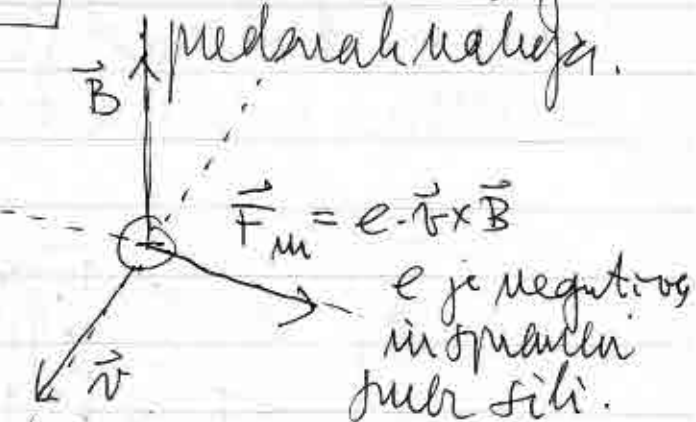 predznak naboja.
B⃗
F⃗m = e·v⃗×B⃗
e je negativen
in spremeni
smer sili.
v⃗